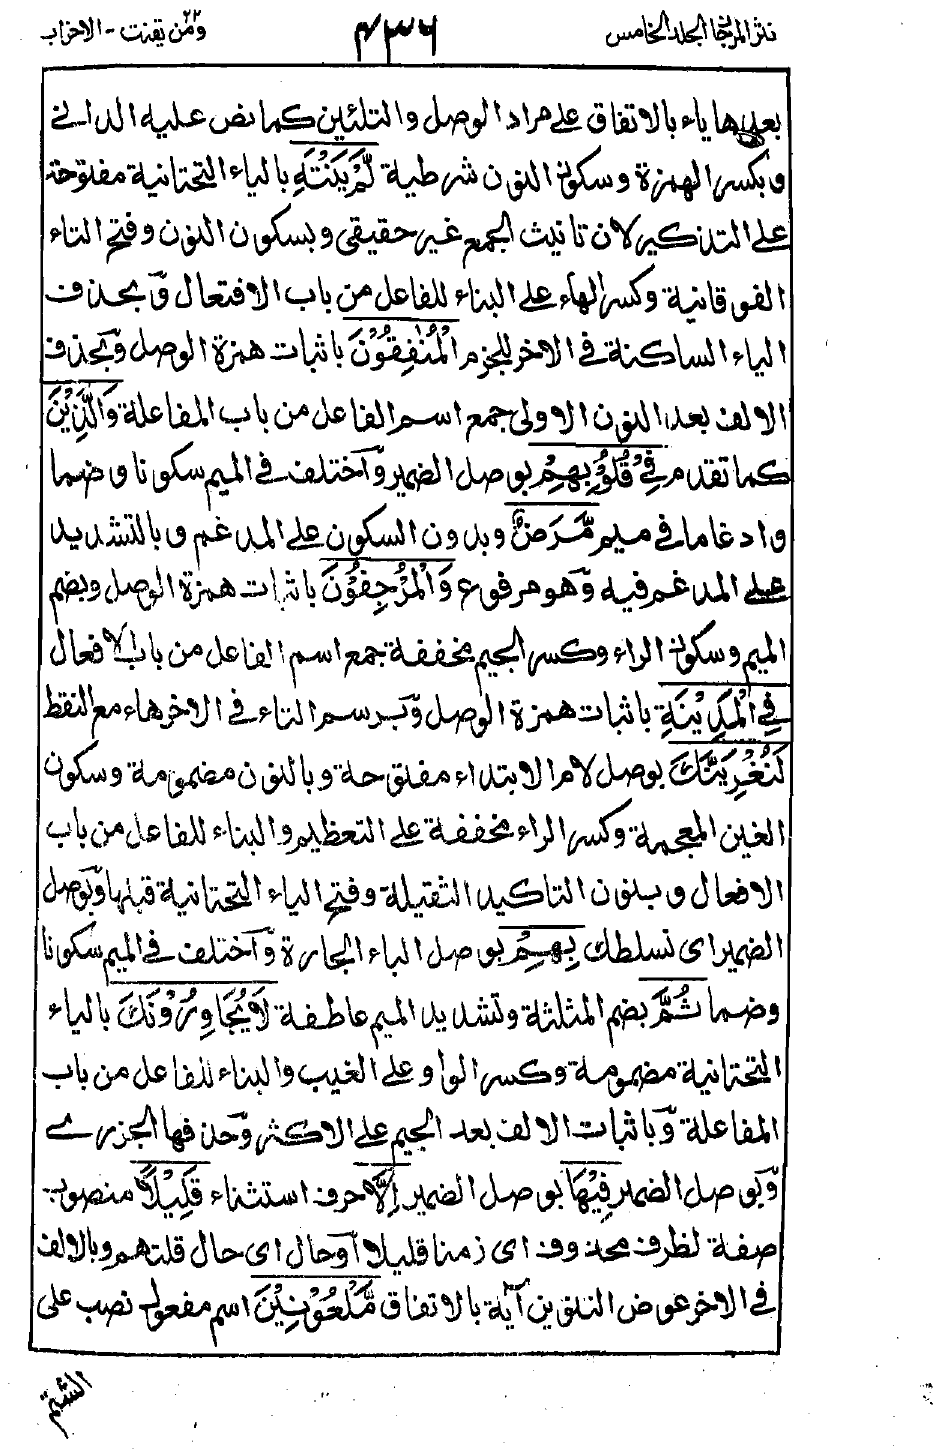 نثر المرجان الجلد الخامس
٤٣٦
ومن يقنت ٢٢ - الاحزاب
بعدها ياء بالاتفاق على مراد الوصل والتلئين كما نص عليه الدانے
وبكسر الهمزة وسكون النون شرطية لَّمْ يَنْتَهِ بالياء التحتانية مفتوحة
على التذكير لان تانيث الجمع غير حقيقى وبسكون النون وفتح التاء
الفوقانية وكسر الهاء على البناء للفاعل من باب الافتعال وبحذف
الياء الساكنة فى الاخر للجزم الْمُنٰفِقُوْنَ باثبات همزة الوصل وبحذف
الالف بعد النون الاولى جمع اسم الفاعل من باب المفاعلة وَالَّذِيْنَ
كما تقدم فِيْ قُلُوْبِهِمْ بوصل الضمير واختلف فى الميم سكونا وضما
وادغاما فى ميم مَّرَضٌ وبدون السكون على المدغم وبالتشديد
على المدغم فيه وهو مرفوع وَالْمُرْجِفُوْنَ باثبات همزة الوصل وبضم
الميم وسكون الراء وكسر الجيم مخففة جمع اسم الفاعل من باب الافعال
فِي الْمَدِيْنَةِ باثبات همزة الوصل وبرسم التاء فى الاخر هاء مع النقط
لَنُغْرِيَنَّكَ بوصل لام الابتداء مفتوحة وبالنون مضمومة وسكون
الغين المعجمة وكسر الراء مخففة على التعظيم والبناء للفاعل من باب
الافعال وبنون التاكيد الثقيلة وفتح الياء التحتانية قبلها وبوصل
الضمير اى نسلطك بِهِمْ بوصل الباء الجارة واختلف فى الميم سكونا
وضما ثُمَّ بضم المثلثة وتشديد الميم عاطفة لَا يُجَاوِرُوْنَكَ بالياء
التحتانية مضمومة وكسر الواو على الغيب والبناء للفاعل من باب
المفاعلة وباثبات الالف بعد الجيم على الاكثر وحذفها الجزرے
وبوصل الضمير فِيْهَا بوصل الضمير اِلَّا حرف استثناء قَلِيْلًا منصوب
صفة لظرف محذوف اى زمنا قليلا اوحال اى حال قلتهم وبالالف
فى الاخر عوض التنوين آية بالاتفاق مَّلْعُوْنِيْنَ اسم مفعول نصب على
الشتم